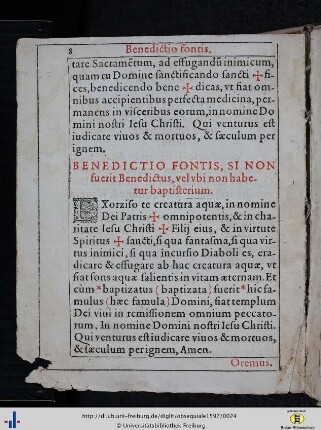 8 Benedictio fontis.
tare Sacramẽtum, ad effugandũ inimicum,
quam tu Domine sanctificando sancti ✠ fi-
ces, benedicendo bene ✠ dicas, vt fiat om-
nibus accipientibus perfecta medicina, per-
manens in visceribus eorum, in nomine Do
mini nostri Iesu Christi. Qui venturus est
iudicare viuos & mortuos, & sæculum per
ignem.
BENEDICTIO FONTIS, SI NON
fuerit Benedictus, vel vbi non habe-
tur baptisterium.
EXorziso te creatura aquæ, in nomine
Dei Patris ✠ omnipotentis, & in cha-
ritate Iesu Christi ✠ Filij eius, & in virtute
Spiritus ✠ sancti, si qua fantasma, si qua vir-
tus inimici, si qua incursio Diaboli es, era-
dicare & effugare ab hac creatura aquæ, vt
fiat fons aquæ salientis in vitam æternam. Et
cùm * baptizatus (baptizata) fuerit * hic fa-
mulus (hæc famula) Domini, fiat templum
Dei viui in remissionem omnium peccato-
rum. In nomine Domini nostri Iesu Christi.
Qui venturus est iudicare viuos & mortuos,
& sæculum per ignem, Amen.
Oremus.
http://dl.ub.uni-freiburg.de/diglit/obsequiale1597/0024
© Universitätsbibliothek Freiburg